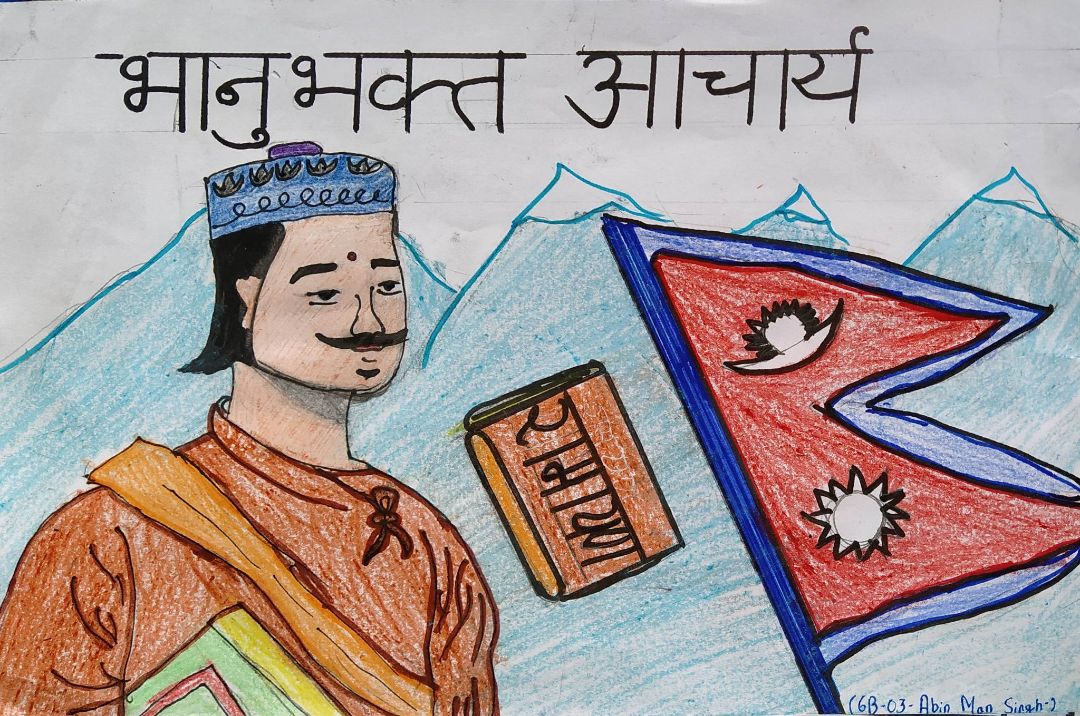 भानुभक्त आचार्य
(6B-03- Abin Man Singh-)